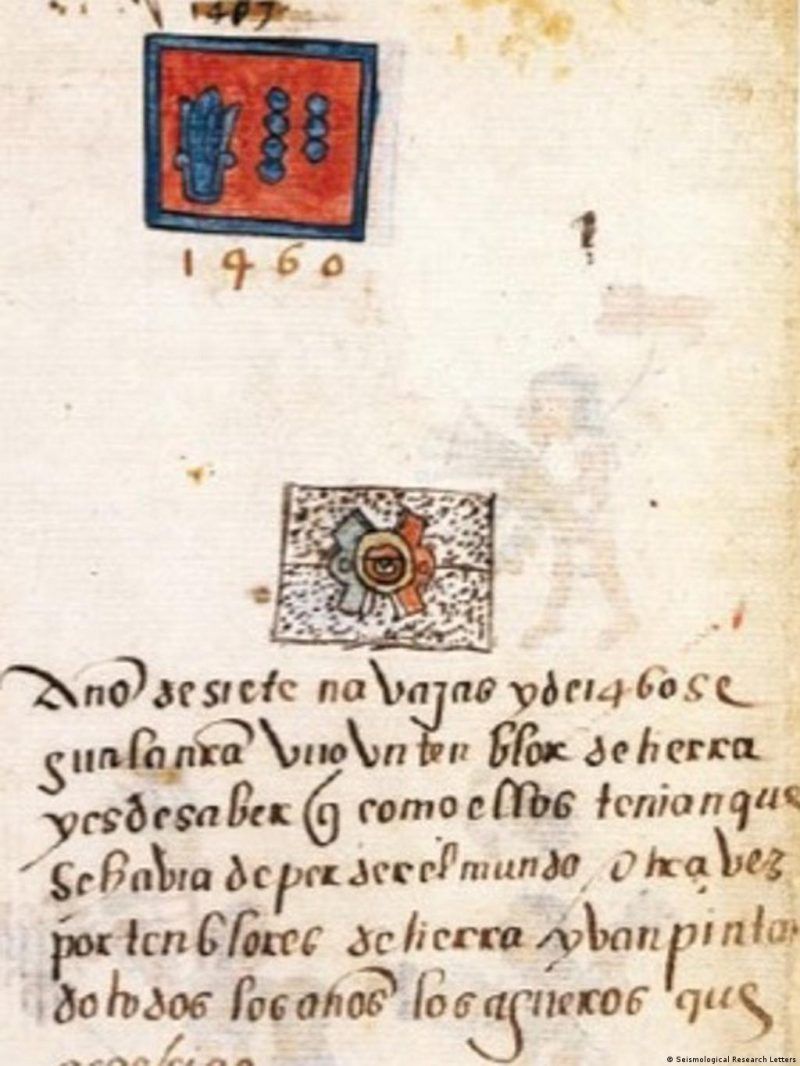 1460
Año de siete navajas y de 1460 se
gun la nr̃a vuo vn tenblor de tierra
y es de saber q̃ como ellos tenian que
se habia de perder el mundo otra vez
por tenblores de tierra yvan pinta
do todos los años los agueros que
© Seismological Research Letters